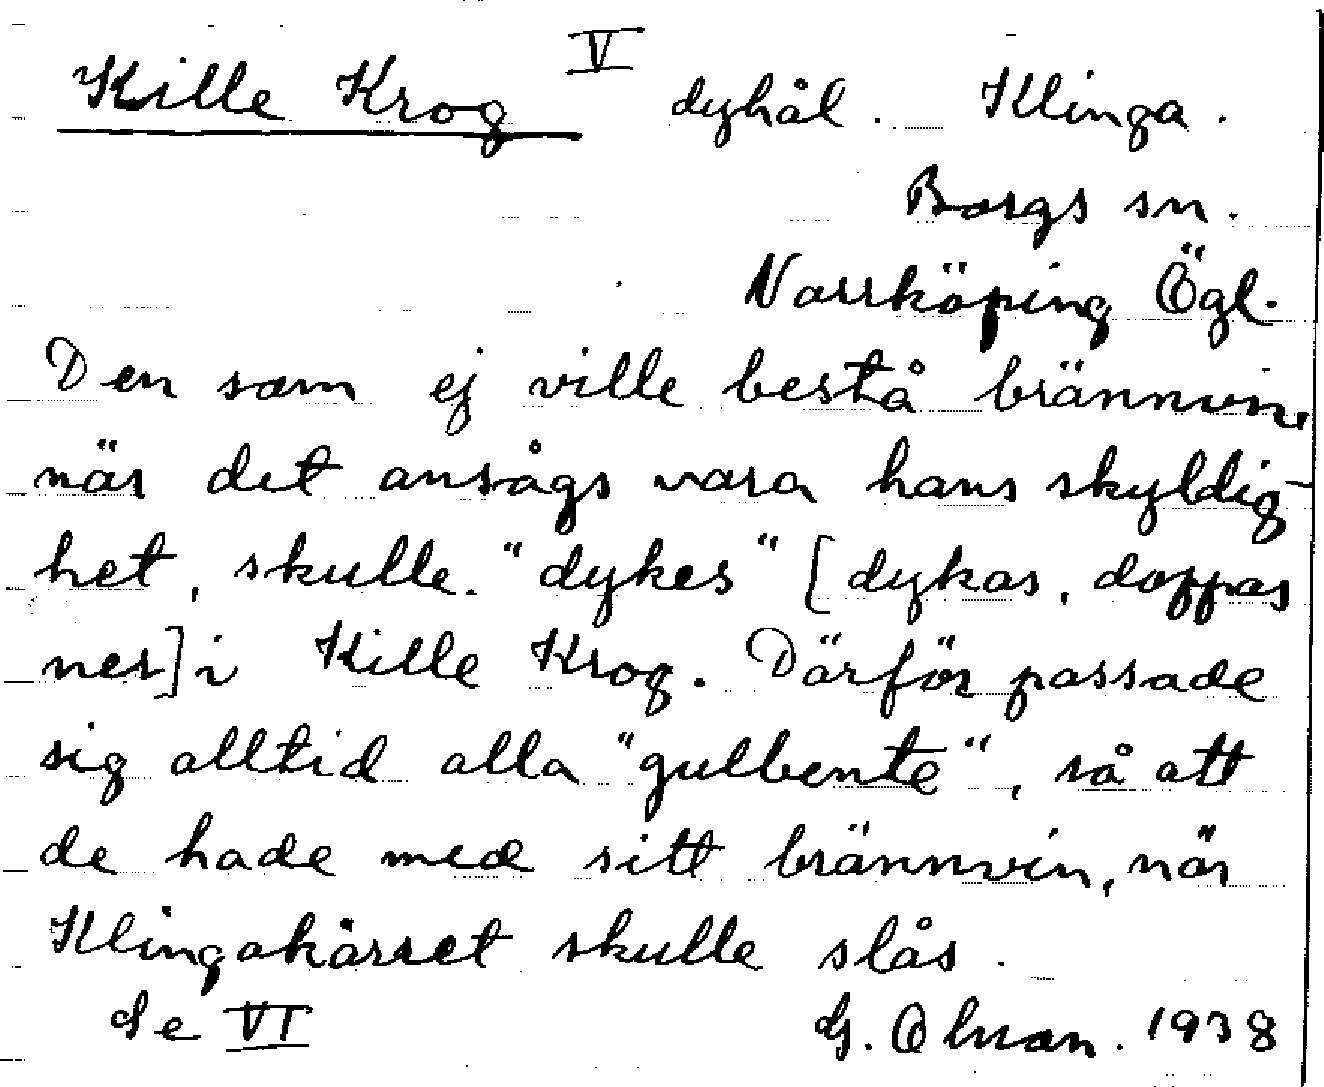 Kille Krog V dyhål. Klinga.
Borgs sn.
Norrköping Ögl.
Den som ej ville bestå brännvin,
när det ansågs vara hans skyldig-
het, skulle "dykes" [dykas, doppas
ner] i Kille Krog. Därför passade
sig alltid alla "gulbente", så att
de hade med sitt brännvin, när
Klingakärret skulle slås.
Se VI G. Olman. 1938